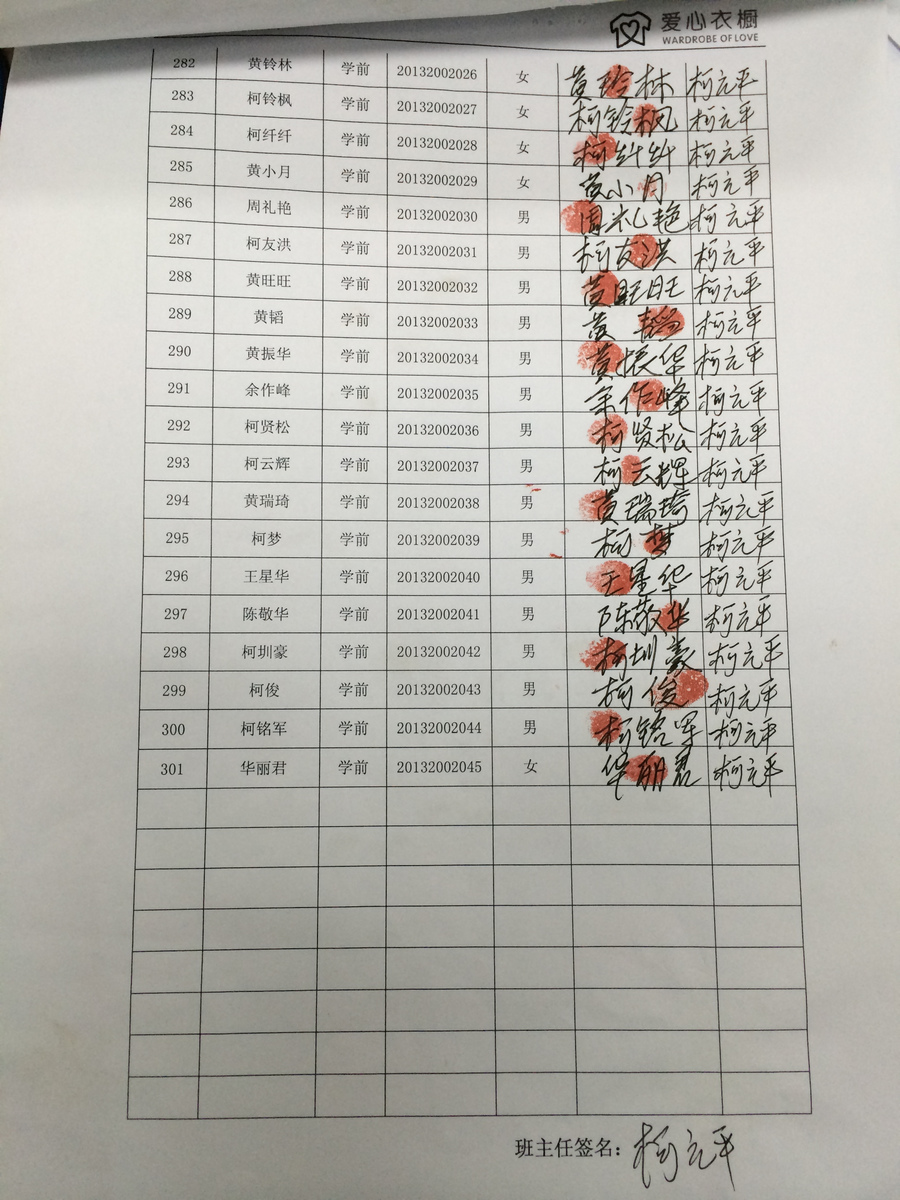 爱心衣橱
WARDROBE OF LOVE
282 黄铃林 学前 20132002026 女 黄玲林 柯元平
283 柯铃枫 学前 20132002027 女 柯铃枫 柯元平
284 柯纤纤 学前 20132002028 女 柯纤纤 柯元平
285 黄小月 学前 20132002029 女 黄小月 柯元平
286 周礼艳 学前 20132002030 男 周礼艳 柯元平
287 柯友洪 学前 20132002031 男 柯友洪 柯元平
288 黄旺旺 学前 20132002032 男 黄旺旺 柯元平
289 黄韬 学前 20132002033 男 黄韬 柯元平
290 黄振华 学前 20132002034 男 黄振华 柯元平
291 余作峰 学前 20132002035 男 余作峰 柯元平
292 柯贤松 学前 20132002036 男 柯贤松 柯元平
293 柯云辉 学前 20132002037 男 柯云辉 柯元平
294 黄瑞琦 学前 20132002038 男 黄瑞琦 柯元平
295 柯梦 学前 20132002039 男 柯梦 柯元平
296 王星华 学前 20132002040 男 王星华 柯元平
297 陈敬华 学前 20132002041 男 陈敬华 柯元平
298 柯圳豪 学前 20132002042 男 柯圳豪 柯元平
299 柯俊 学前 20132002043 男 柯俊 柯元平
300 柯铭军 学前 20132002044 男 柯铭军 柯元平
301 华丽君 学前 20132002045 女 华丽君 柯元平
班主任签名：柯元平